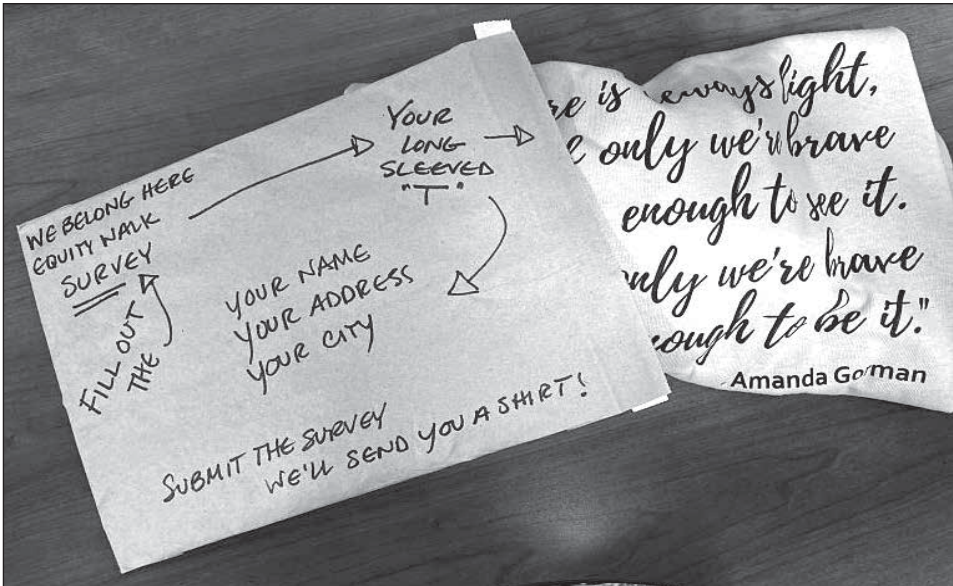 WE BELONG HERE
EQUITY WALK
SURVEY
FILL OUT
THE
YOUR
LONG
SLEEVED
"T"
YOUR NAME
YOUR ADDRESS
YOUR CITY
SUBMIT THE SURVEY
WE'LL SEND YOU A SHIRT!
re is always light,
only we're brave
enough to see it.
only we're brave
enough to be it."
Amanda Gorman